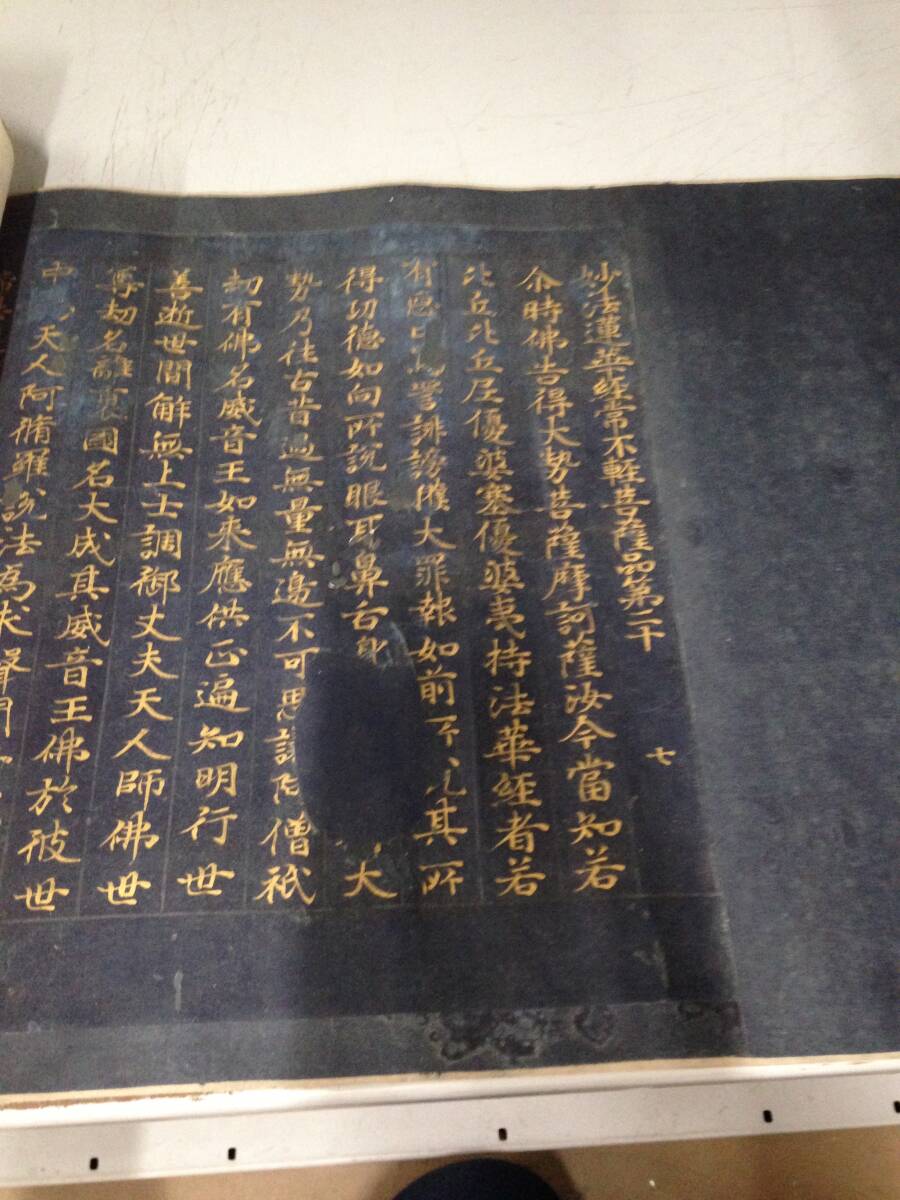 妙法蓮華經常不軽菩薩品第二十　七
尒時佛告得大勢菩薩摩訶薩汝今當知若
比丘比丘尼優婆塞優婆夷持法華經者若
有惡口罵詈誹謗獲大罪報如前其所
得功德如向所說眼耳鼻舌身大
勢乃往古昔過無量無邊不可思議阿僧祇
劫有佛名威音王如来應供正遍知明行
善逝世間解無上士調御丈夫天人師佛世
尊劫名離衰國名大成其威音王佛於彼世
中天人阿脩羅說法為求聲聞